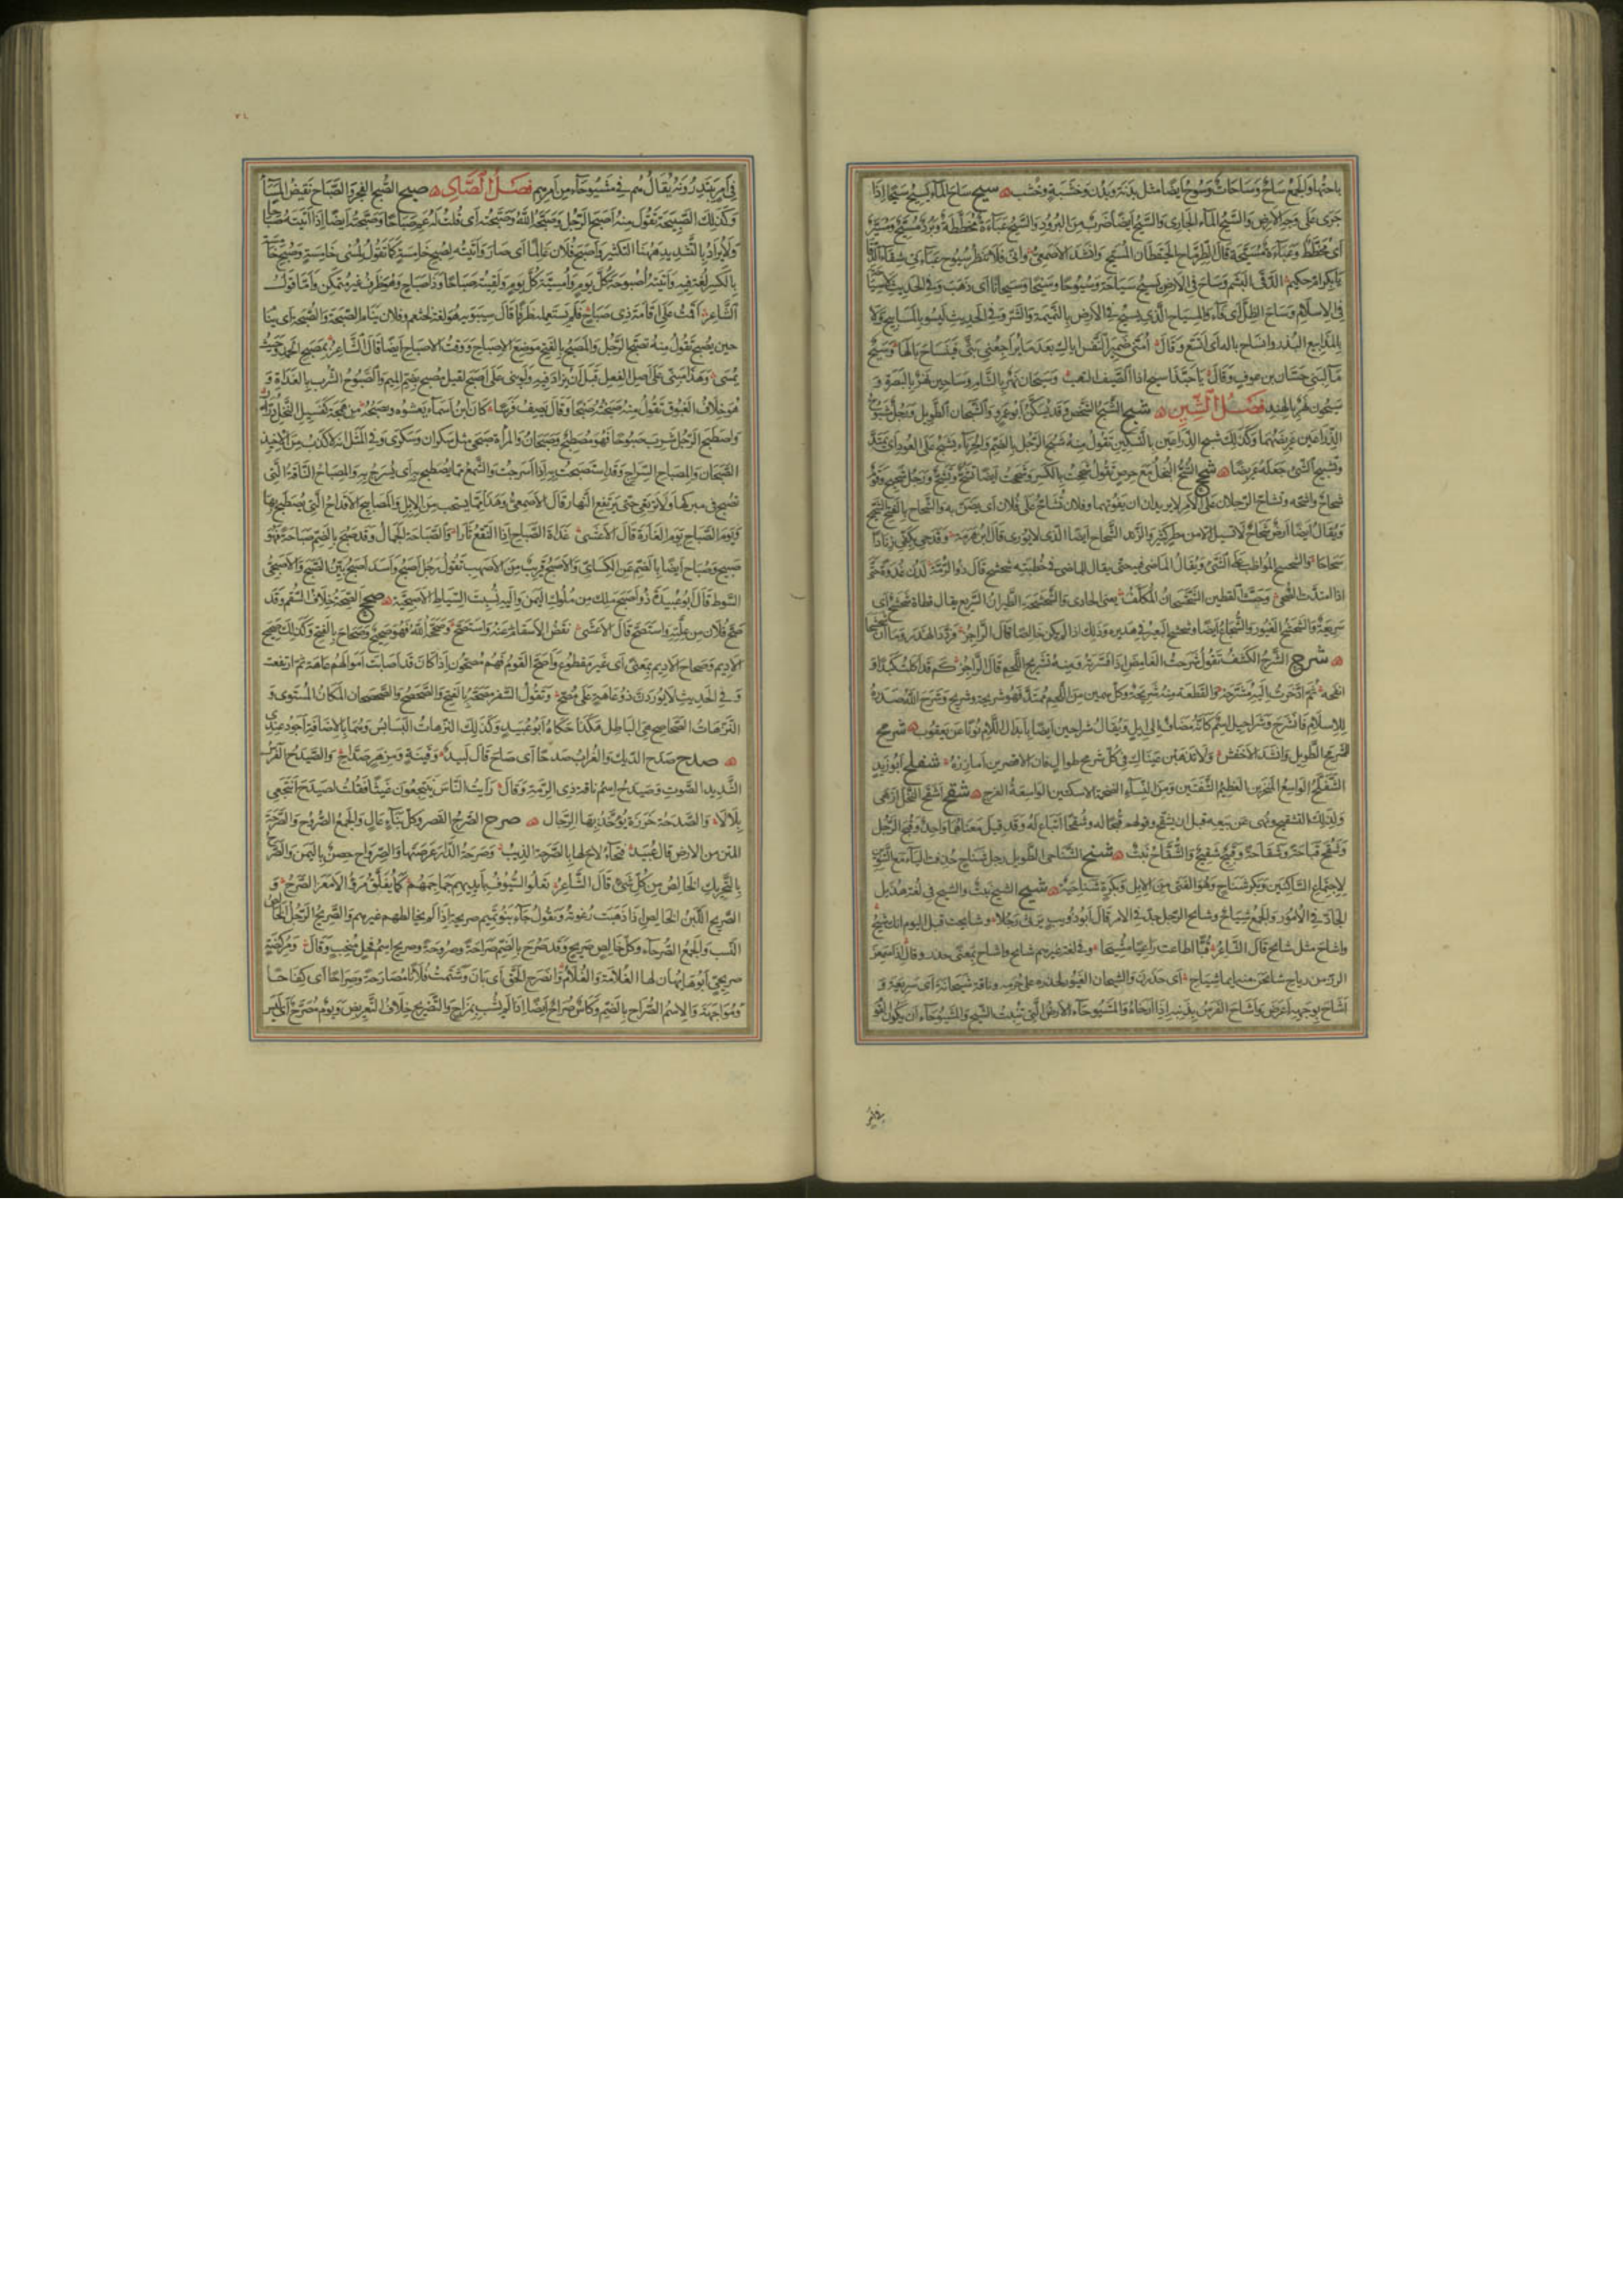 باحتها والجمع ساح وساحات وسوح ايضا مثل بدنة وبدن وخشبة وخشب سيح ساح الماء يسيح سيحا اذا
جرى على وجه الارض والسيح الماء الجارى والسيح ايضا ضرب من البرود والسيح عباءة مخططة وبرد مسيح ومسير
اى مخطط وعباءة مسيحة قال الطرماح الحيقطان المسيح وانشد الاصمعى وانى فلا تنظر سيوح عباءتى شفاء الدقى
يا بكر ام حكيم الدقى البشم وساح فى الارض يسيح سياحة وسيوحا وسيحا وسيحانا اى ذهب وفى الحديث لا سياحة
فى الاسلام وساح الظل اى فاء والمسياح الذى يسيح فى الارض بالنميمة والشر وفى الحديث ليسوا بالمساييح ولا
بالمذاييع البذر وانساح باله اى اتسع وقال امنى ضمير النفس اياك بعد ما يراجعنى بثى فينساح بالها وسيح
ماء لبنى حسان بن عوف وقال يا حبذا سيح اذا الصيف التهب وسيحان نهر بالشام وساحين نهر بالبصرة و
سيحون نهر بالهند فصل الشين شبح الشبح الشخص وقد يسكن ابو عمرو والشبحان الطويل ورجل مشبوح
الذراعين عريضهما وكذلك شبح الذراعين بالتسكين تقول منه شبح الرجل بالضم والحرباء يشبح على العود اى يمتد
وتشبيح الشئ جعله عريضا شحح الشح البخل مع حرص تقول شححت بالكسر وشححت ايضا تشح وتشح ورجل شحيح وقوم
شحاح واشحة وتشاح الرجلان على الامر لا يريدان ان يفوتهما وفلان يشاح على فلان اى يضن به والشحاح بالفتح الشحيح
ويقال ايضا ارض شحاح لا تسيل الا من مطر كثير والزند الشحاح ايضا الذى لا يورى قال ابن هرمة وقدحى بكفى زنادا
شحاحا والشحشح المواظب على الشئ ويقال الماضى فيه حتى يقال للماضى فى خطبته شحشح قال ذو الرمة لدن غدوة حتى
اذا امتدت الضحى وحث القطين الشحشحان المكلف يعنى الحادى والشحشحة الطيران السريع يقال قطاة شحشح اى
سريعة والشحشح الغيور والشجاع ايضا وشحشح البعير فى هديره وذلك اذا لم يكن خالصا قال الراجز
شرح الشرح الكشف تقول شرحت الغامض اذا فسرته ومنه تشريح اللحم قال الراجز كم قد اكلت كبدا و
انفحة ثم ادخرت الية مشرحة والقطعة منه شريحة وكل سمين من اللحم ممتد فهو شريحة وشريح وشرح الله صدره
للاسلام فانشرح وشراحيل اسم كانه مضاف الى ايل ويقال شراحين ايضا بابدال اللام نونا عن يعقوب شرمح
الشرمح الطويل وانشد الاخفش ولا تذهبن عيناك فى كل شرمح طوال فان الاقصرين امازره شفلح ابو زيد
الشفلح الواسع المنخرين العظيم الشفتين ومن النساء الضخمة الاسكتين الواسعة الفرج شقح اشقح النخل ازهى
وكذلك التشقيح ونهى عن بيعه قبل ان يشقح وقولهم قبحا له وشقحا اتباع له وقد قيل معناهما واحد وقبح الرجل
وشقح قباحة وشقاحة وقبيح شقيح والشقاح نبت شنح الشناحى الطويل رجل شناح حذفت الياء مع التنوين
لاجتماع الساكنين وبكر شناح وهو الفتى من الابل وبكرة شناحية شيح الشيح نبت والشيح فى لغة هذيل
الجاد فى الامور والجمع شياح وشايح الرجل جد فى الامر قال ابو ذؤيب يرثى رجلا وشايحت قبل اليوم انك شيح
واشاح مثل شايح قال الشاعر قبا اطاعت راعيا مشيحا وفى لغة غيرهم شايح واشاح بمعنى حذر وقال اذا سمعن
الرز من رباح شايحن منه ايما شياح اى حذرن والشيحان الغيور لحذره على حرمه وناقة شيحانة اى سريعة و
اشاح بوجهه اعرض واشاح الفرس بذنبه اذا ارخاه والمشيوحاء الارض التى تنبت الشيح والمشيوحاء ان يكون القوم
فى امر
فى امر يبتدرونه يقال هم فى مشيوحاء من امرهم فصل الصاد صبح الصبح الفجر والصباح نقيض المساء
وكذلك الصبيحة تقول منه اصبح الرجل وصبحه الله وصبحته اى قلت له عم صباحا وصبحته ايضا اذا اتيته صباحا
ولا يراد بالتشديد ههنا التكثير واصبح فلان عالما اى صار واتيته لصبح خامسة كما تقول لمسى خامسة وصبح خامسة
بالكسر لغة فيه واتيته اصبوحة كل يوم وامسية كل يوم ولقيته صباحا وذا صباح وهو ظرف غير متمكن واما قول
الشاعر عزمت على اقامة ذى صباح فلم يستعمله ظرفا قال سيبويه هو لغة لخثعم وفلان ينام الصبحة والصبحة اى ينام
حين يصبح تقول منه تصبح الرجل والمصبح بالفتح موضع الاصباح ووقت الاصباح ايضا قال الشاعر بمصبح الحمد وحيث
يمسى وهذا مبنى على اصل الفعل قبل ان يزاد فيه ولو بنى على اصبح لقيل مصبح بضم الميم والصبوح الشرب بالغداة و
هو خلاف الغبوق تقول منه صبحته صبحا وقال يصف فرسا كان ابن اسماء يعشوه ويصبحه من هجمة كفسيل النخل درار
واصطبح الرجل شرب صبوحا فهو مصطبح وصبحان والمراة صبحى مثل سكران وسكرى وفى المثل انه لاكذب من الاخيذ
الصبحان والمصباح السراج وقد استصبحت به اذا اسرجت والشمع مما يصطبح به اى يسرج به والمصباح الناقة التى
تصبح فى مبركها ولا ترتعى حتى يرتفع النهار قال الاصمعى وهذا مما يستحب من الابل والمصابيح الاقداح التى يصطبح بها
ويوم الصباح يوم الغارة قال الاعشى غداة الصباح اذا النقع ثارا والصباحة الجمال وقد صبح بالضم صباحة فهو
صبيح وصباح ايضا بالضم عن الكسائى والاصبح قريب من الاصهب تقول رجل اصبح واسد اصبح بين الصبح والاصبحى
السوط قال ابو عبيدة ذو اصبح ملك من ملوك اليمن واليه نسبت السياط الاصبحية صحح الصحة خلاف السقم وقد
صح فلان من علته واستصح قال الاعشى نفض الاسقام عنه واستصح وصححه الله فهو صحيح وصحاح بالفتح وكذلك صحيح
الاديم وصحاح الاديم بمعنى اى غير مقطوع واصح القوم فهم مصحون اذا كانت قد اصابت اموالهم عاهة ثم ارتفعت
وفى الحديث لا يوردن ذو عاهة على مصح وتقول السفر مصحة بالفتح والصحصح والصحصحان المكان المستوى و
الترهات الصحاصح هى الباطل هكذا حكاه ابو عبيد وكذلك الترهات البسابس وهما بالاضافة اجود عندى
صدح صدح الديك والغراب صدحا اى صاح قال لبيد وقينة ومزهر صداح والصيدح الفرس
الشديد الصوت وصيدح اسم ناقة ذى الرمة وقال رايت الناس ينتجعون غيثا فقلت لصيدح انتجعى
بلالا والصدحة خرزة يؤخذ بها الرجال صرح الصرح القصر وكل بناء عال والجمع الصروح والصرحة
المتن من الارض قال عبيد فتحاء لاح لها بالصرحة الذيب وصرحة الدار عرصتها والصرواح حصن باليمن والصرح
بالتحريك الخالص من كل شئ قال الشاعر نعلو السيوف بايديهم جماجمهم كما يفلق مرو الامعز الصرح و
الصريح اللبن الخالص اذا ذهبت رغوته وتقول جاء بنو تميم صريحة اذا لم يخالطهم غيرهم والصريح الرجل الخالص
النسب والجمع الصرحاء وكل خالص صريح وقد صرح بالضم صراحة وصروحة وصريح اسم فحل منجب وقال ومركضة
صريحى ابوها يهان لها الغلامة والغلام وانصرح الحق اى بان وشتمت فلانا مصارحة وصراحا اى كفاحا
ومواجهة والاسم الصراح بالضم وكاس صراح ايضا اذا لم تشب بمزاج والتصريح خلاف التعريض ويوم مصرح اى ليس